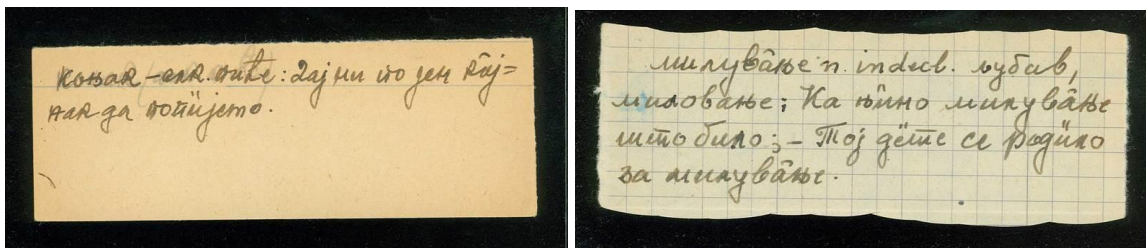 коњак – алк. пиће: Дај ни по јен кȏј=
нак да попијемо.
милувȃње n. indecl. љубав,
миловање; Ка њȉно милувȃње
што било; – Тој дȅте се родȉло
за милувȃње.